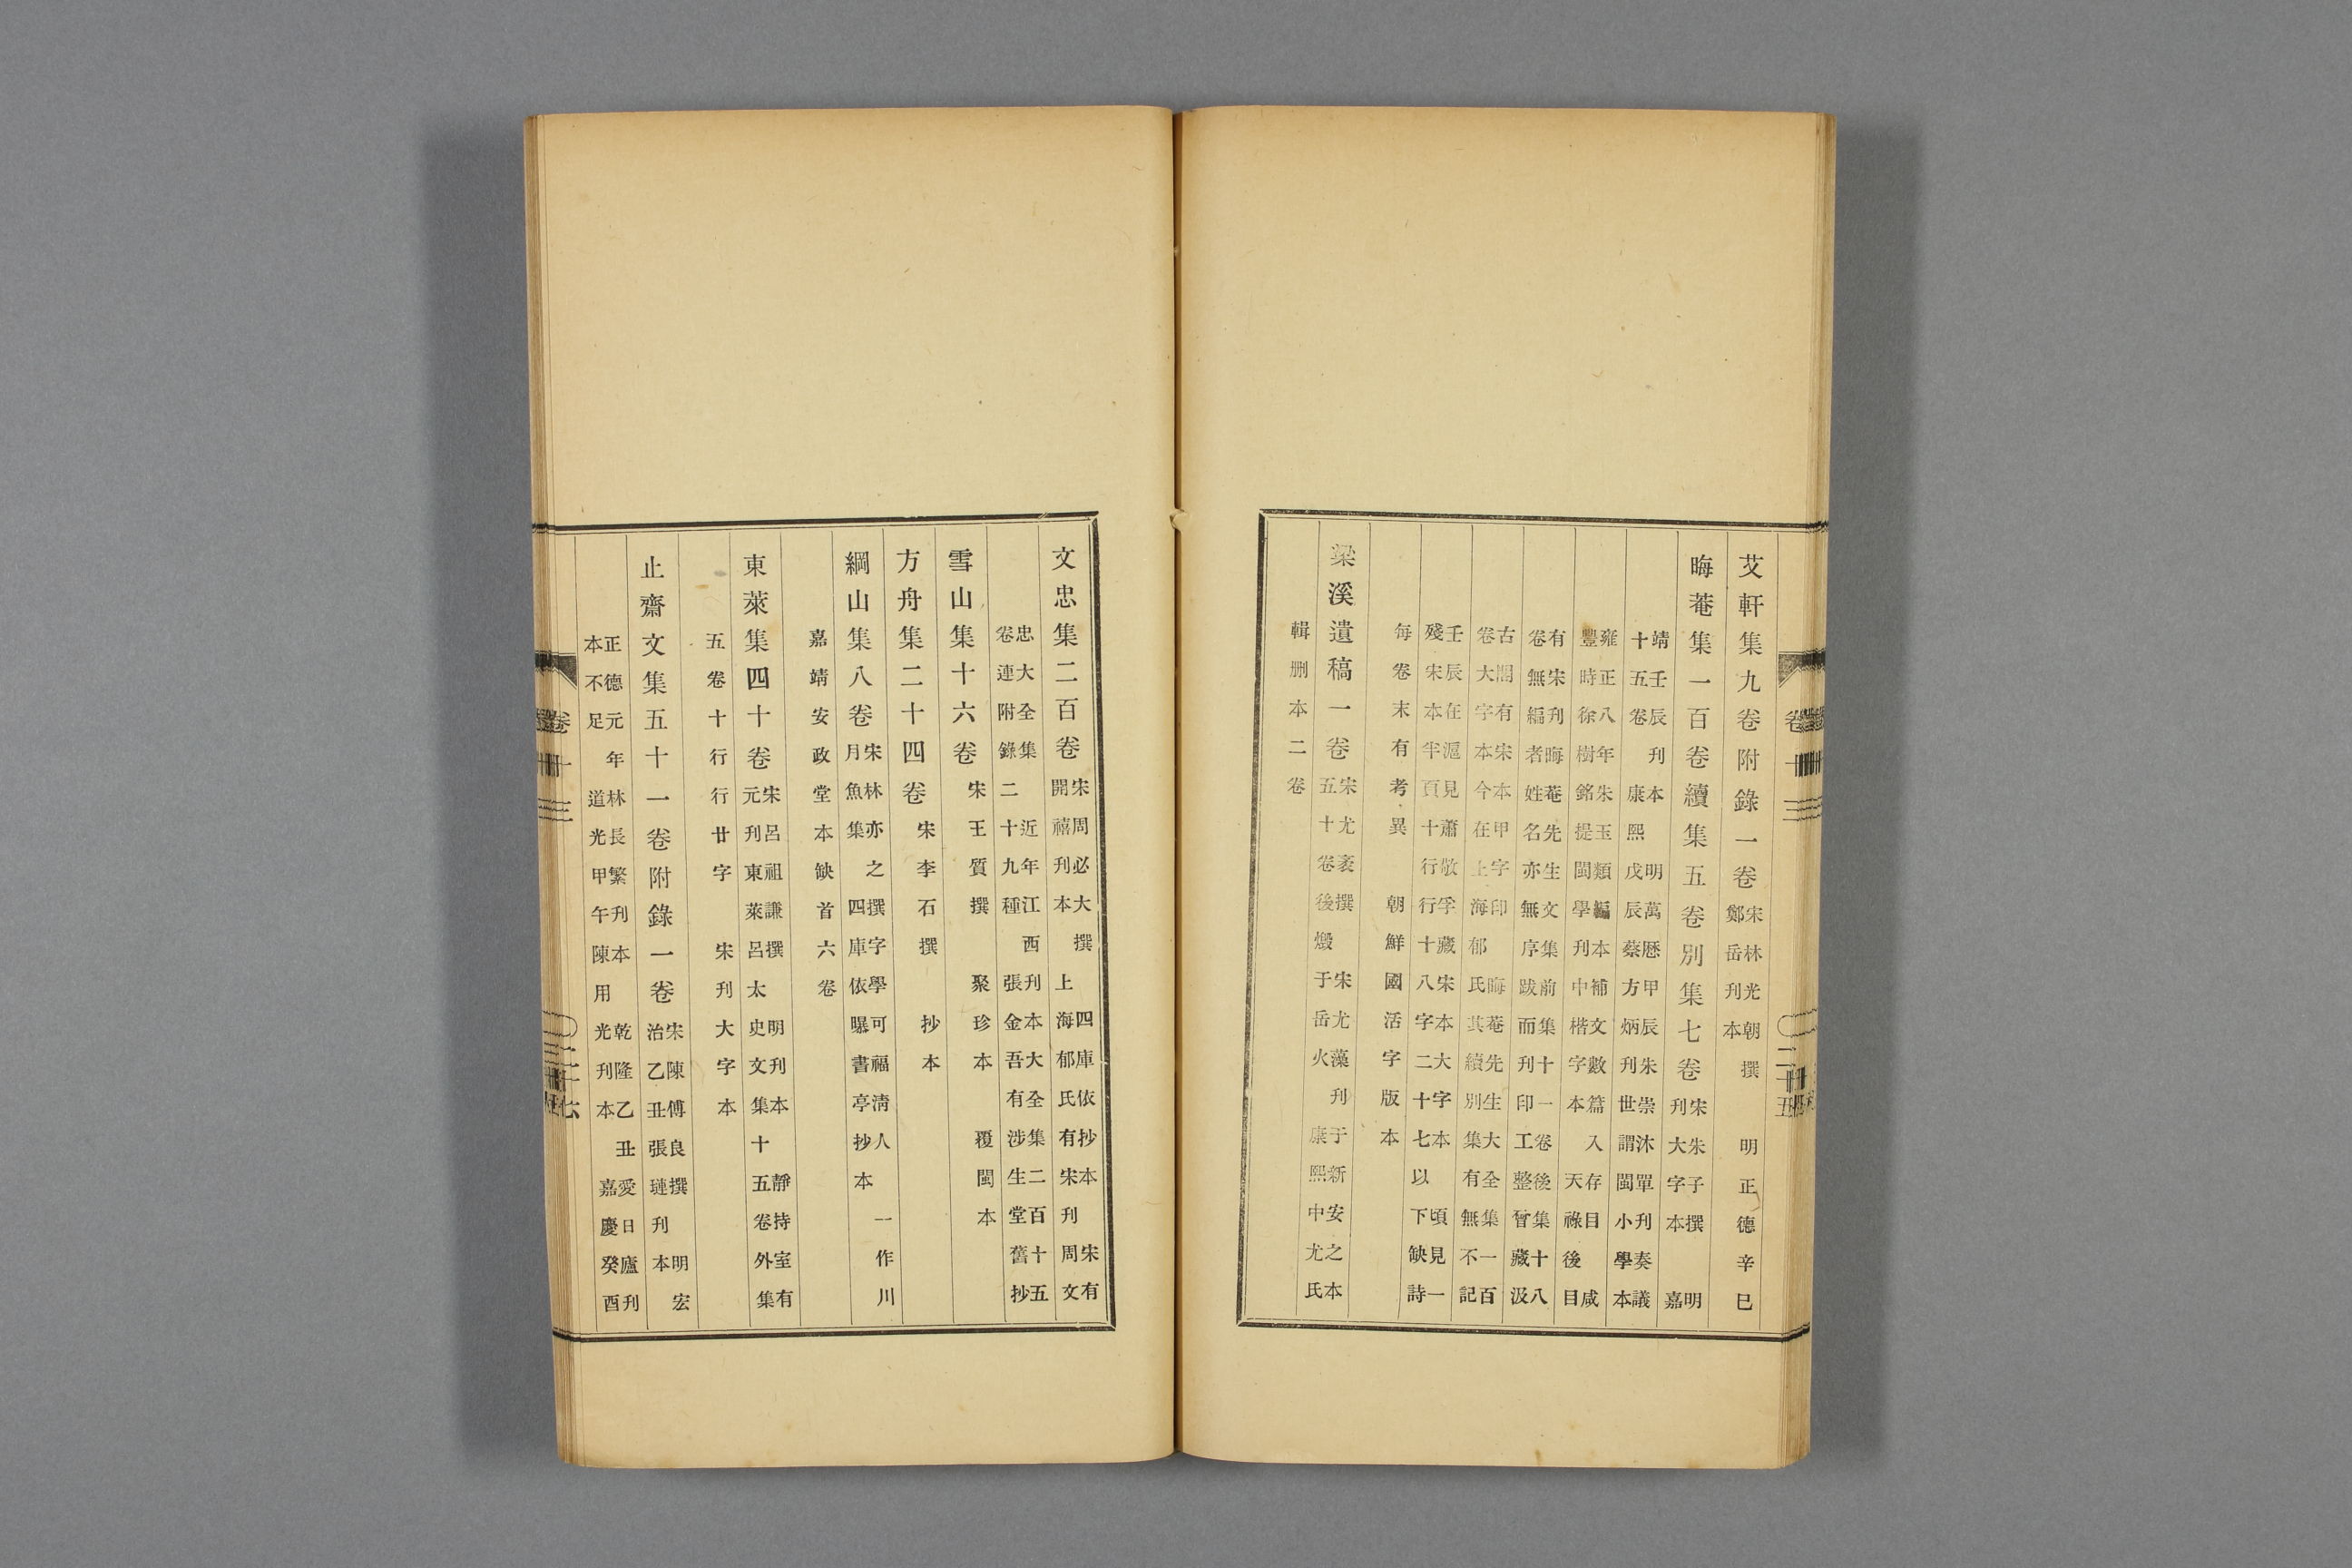 艾軒集九卷附錄一卷
宋林光朝撰
鄭岳刊本
明正德辛巳
晦菴集一百卷續集五卷別集七卷
宋朱子撰 明
刊大字本 嘉
靖壬辰刊本 明萬歷甲辰朱崇沐單刊奏議
十五卷 康熙戊辰蔡方炳刊世謂閩小學本
雍正八年朱玉類編本補文數篇入存目 咸
豐時徐樹銘提閩學刊中楷字本 天祿後目
有宋刊晦菴先生文集前集十一卷後集十八
卷無編者姓名亦無序跋而刊印工整曾藏汲
古閣有宋本甲字印 晦菴先生大全集一百
卷大字本今在上海郁氏其續別集有無不記
壬辰在滬見蕭敬孚藏宋本大字本 頃見一
殘宋本半頁十行行十八字二十七以下缺詩
每卷末有考異 朝鮮國活字版本
梁溪遺稿一卷
宋尤袤撰 宋尤藻刊于新安之本
五十卷後燬于岳火 康熙中尤氏
輯刪本二卷
卷十三 二十五
文忠集二百卷
宋周必大撰 四庫依抄本 宋有
開禧刊本 上海郁氏有宋刊周文
忠大全集 近年江西刊本大全集二百十五
卷連附錄二十九種 張金吾有涉生堂舊抄
雪山集十六卷
宋王質撰 聚珍本 覆閩本
方舟集二十四卷
宋李石撰 抄本
綱山集八卷
宋林亦之撰字學可福清人 一作川
月魚集 四庫依曝書亭抄本
嘉靖安政堂本缺首六卷
東萊集四十卷
宋呂祖謙撰 明刊本 靜持室有
元刊東萊呂太史文集十五卷外集
五卷十行行廿字 宋刊大字本
止齋文集五十一卷附錄一卷
宋陳傅良撰 明宏
治乙丑張璡刊本
正德元年林長繁刊本 乾隆乙丑愛日廬刊
本不足 道光甲午陳用光刊本 嘉慶癸酉
卷十三 二十六